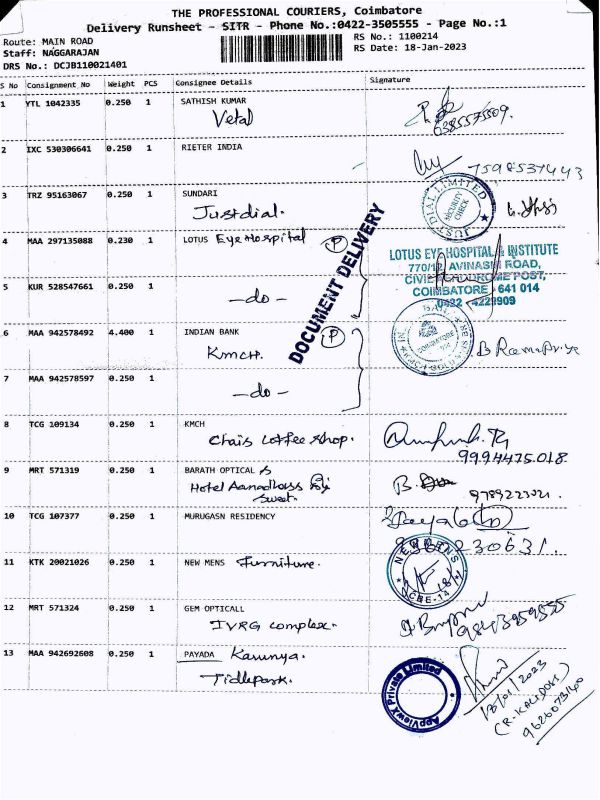 THE PROFESSIONAL COURIERS, Coimbatore
Delivery Runsheet - SITR - Phone No.:0422-3505555 - Page No.:1
Route: MAIN ROAD
Staff: NAGGARAJAN
DRS No.: DCJB110021401
RS No.: 1100214
RS Date: 18-Jan-2023
S No Consignment_No Weight PCS Consignee Details Signature
1 YTL 1042335 0.250 1 SATHISH KUMAR
Vetal
2 IXC 530306641 0.250 1 RIETER INDIA
7598537443
3 TRZ 95163067 0.250 1 SUNDARI
Justdial.
JUST DIAL LIMITED
SECURITY CHECK
4 MAA 297135088 0.230 1 LOTUS Eye Hospital P
LOTUS EYE HOSPITAL & INSTITUTE
770/12, AVINASHI ROAD,
CIVIL AERODROME POST,
COIMBATORE - 641 014
0422 - 4229909
5 KUR 528547661 0.250 1
-do-
DOCUMENT DELIVERY
6 MAA 942578492 4.400 1 INDIAN BANK P
KMCH.
COIMBATORE
B Ramapriya
7 MAA 942578597 0.250 1
-do-
8 TCG 109134 0.250 1 KMCH
Chais Coffee shop.
9994475018
9 MRT 571319 0.250 1 BARATH OPTICAL
Hotel Aanadhass
Sweet.
9789223021.
10 TCG 107377 0.250 1 MURUGASN RESIDENCY
11 KTK 20021026 0.250 1 NEW MENS Furniture.
CBE-14
12 MRT 571324 0.250 1 GEM OPTICALL
IVRG complex.
9843959555
13 MAA 942692608 0.250 1 PAYADA Karunya.
Tidlepark.
AppViewX Private Limited
18/01/2023
9626073140